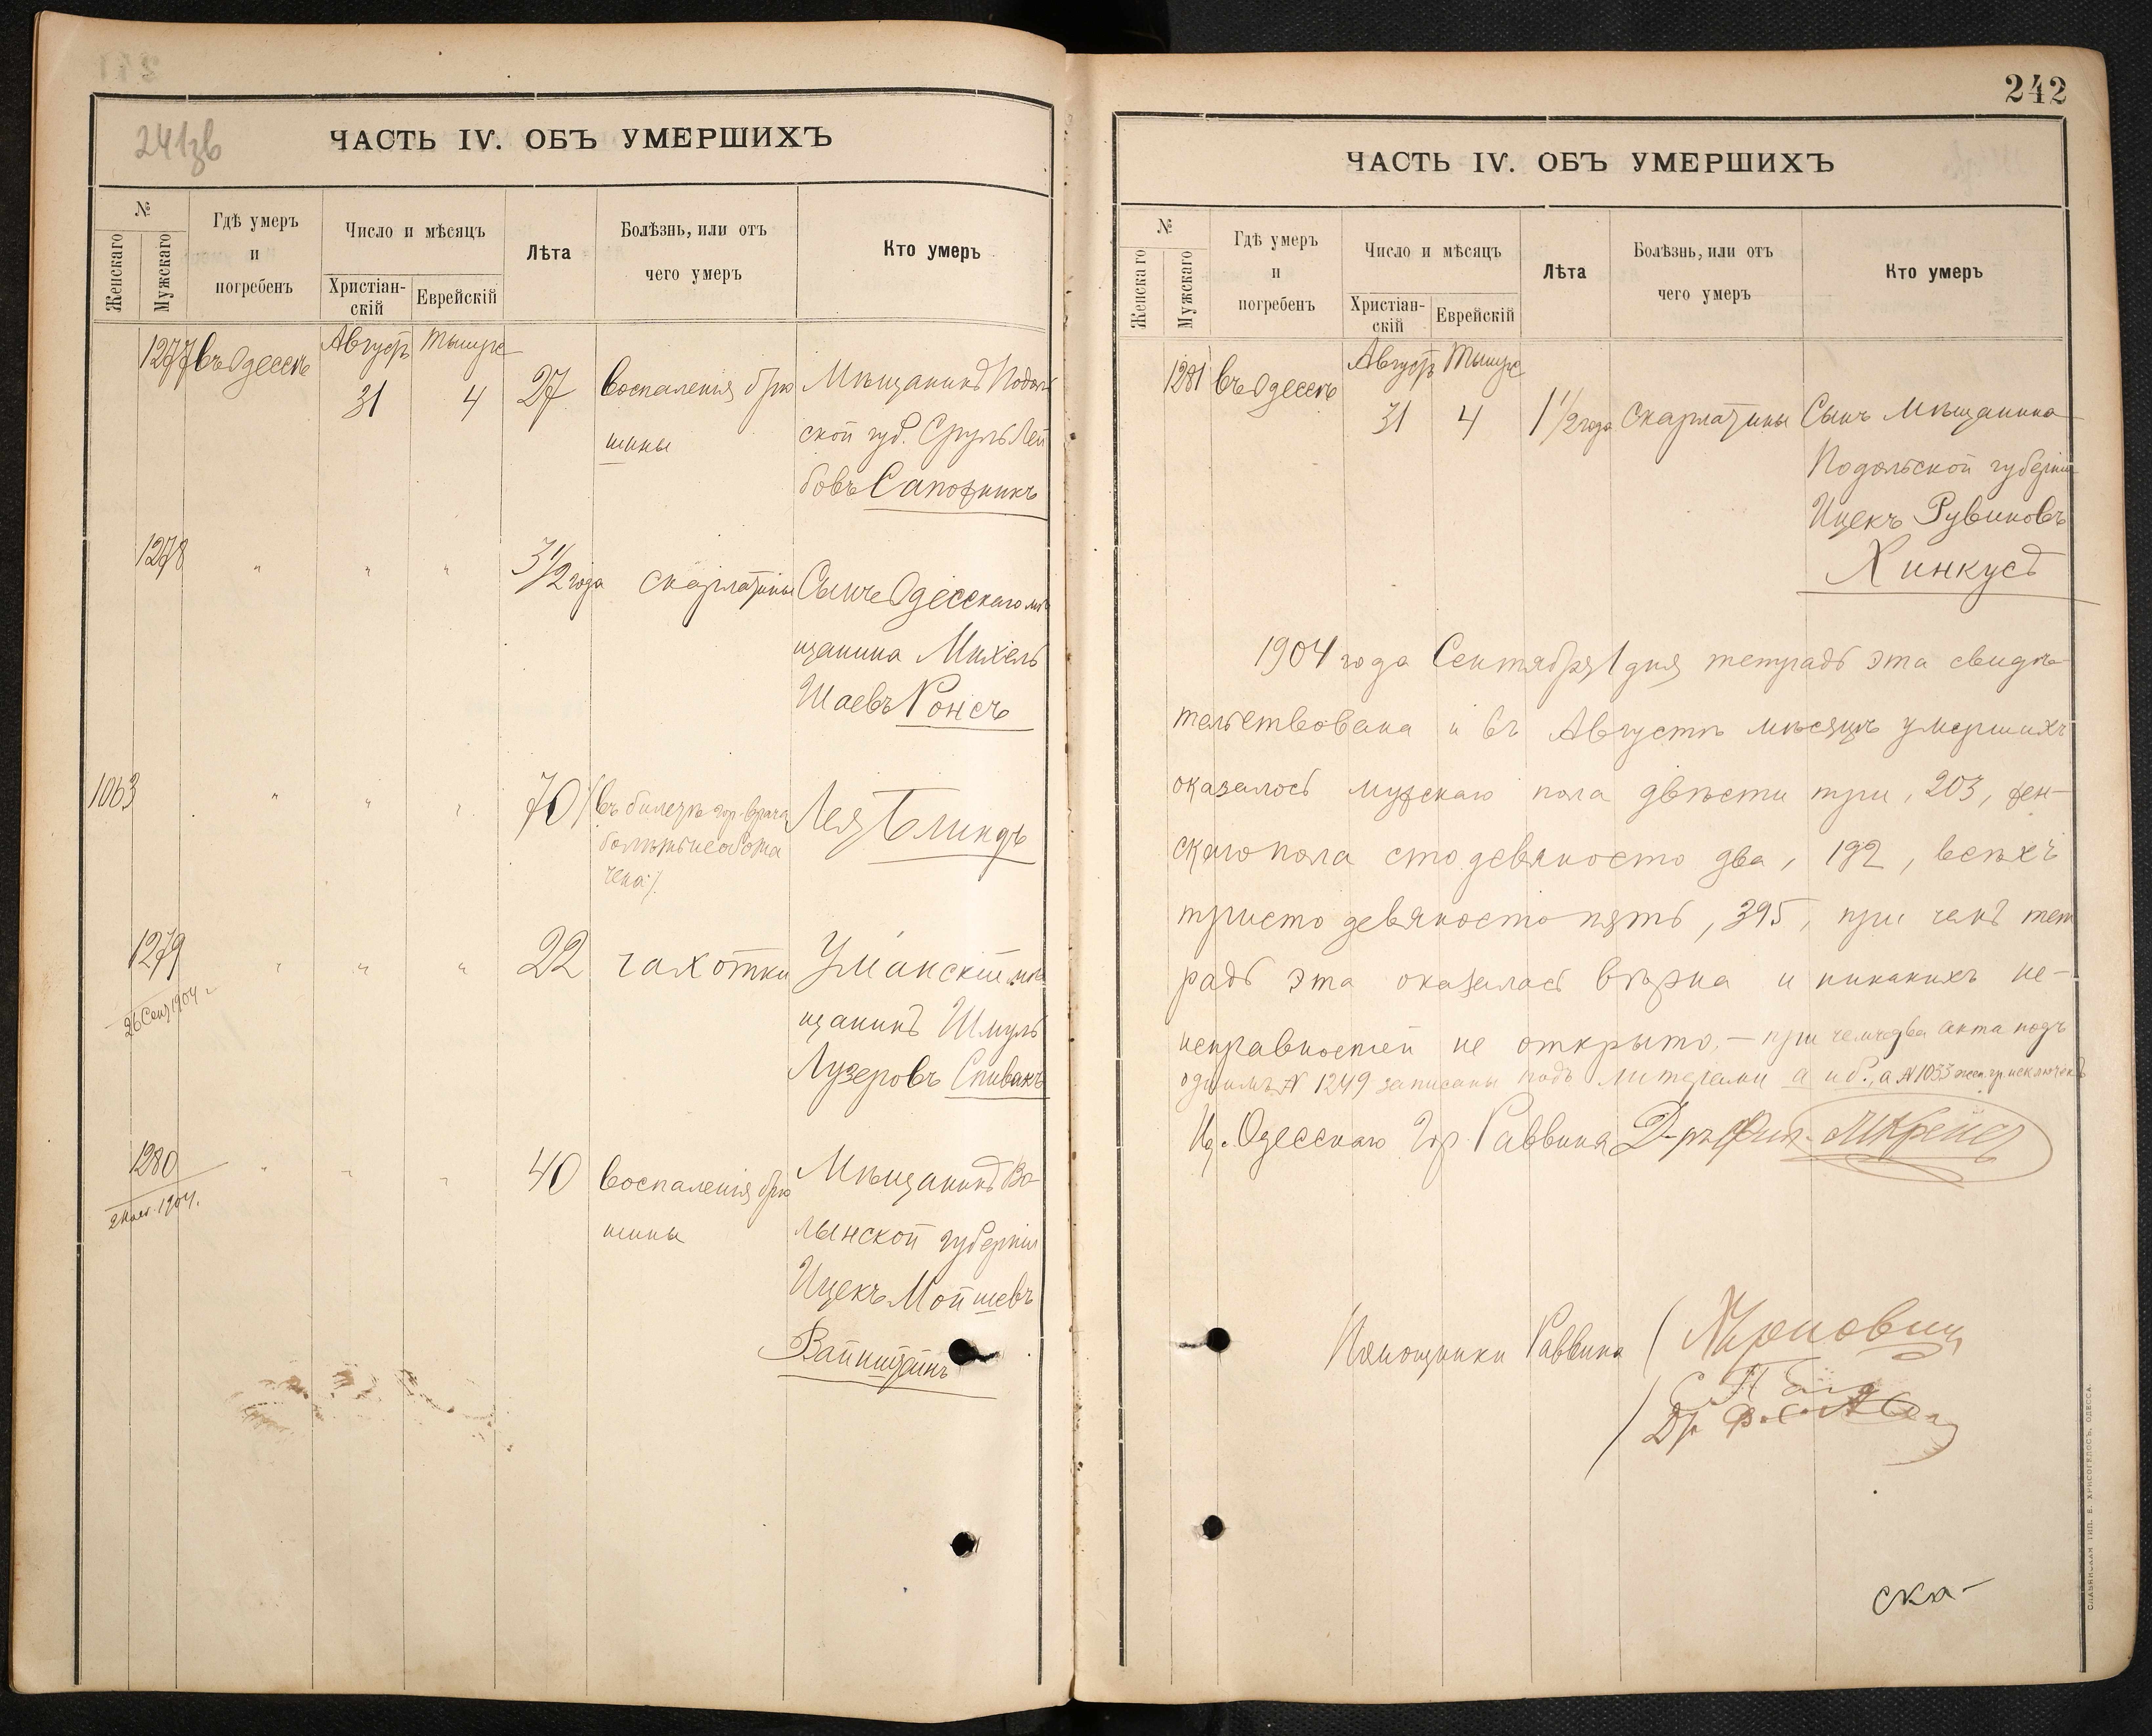 241зв
ЧАСТЬ IV. ОБЪ УМЕРШИХЪ
№
Женскаго
Мужскаго
Гдѣ умеръ
и
погребенъ
Число и мѣсяцъ
Христіан-
скій
Еврейскій
Лѣта
Болѣзнь, или отъ
чего умеръ
Кто умеръ
1277 въ Одессѣ Августъ Тишре
31 4 27 воспаленія брю Мѣщанинъ Подоль
шины ской губ. Сруль Лей
бовъ Сапожникъ
1278 " " " 3 1/2 года скарлатины Сынъ Одесскаго мѣ
щанина Михель
Шаевъ
1063 " " " 70 /:въ билетѣ гор. врача Лея Блиндъ
болѣзнь не обозна
чена:/
1279 " " " 22 чахотки Уманскій мѣ
26 Сент 1904 г.
щанинъ Шмуль
Лузеровъ Спивакъ
1280 " " " 40 воспаленія брю Мѣщанинъ Во
1904.
шины лынской губерніи
Ицекъ Мойшевъ
Вайнштейнъ
242
ЧАСТЬ IV. ОБЪ УМЕРШИХЪ
№
Женскаго
Мужскаго
Гдѣ умеръ
и
погребенъ
Число и мѣсяцъ
Христіан-
скій
Еврейскій
Лѣта
Болѣзнь, или отъ
чего умеръ
Кто умеръ
1281 въ Одессѣ Августъ Тишре
31 4 1 1/2 года Скарлатины Сынъ Мѣщанина
Подольской губерніи
Ицекъ Рувиновъ
Хинкусъ
1904 года Сентября 1 дня тетрадь эта свидѣ
тельствована и въ Августѣ мѣсяцѣ умершихъ
оказалось мужскаго пола двѣсти три, 203, жен-
скаго пола сто девяносто два, 192, всѣхъ
триста девяносто пять, 395, при чемъ тет
радь эта оказалась вѣрна и никакихъ не-
исправностей не открыто, – при чемъ два акта подъ
однимъ № 1249 записаны подъ литерами а и б., а № 1053 жен. гр. исключенъ
И. д. Одесскаго Гор. Раввина Д-ръ Фил.
Помощники Раввина
ска-
СЛАВЯНСКАЯ ТИП. Е. ХРИСОГЕЛОСЪ, ОДЕССА.